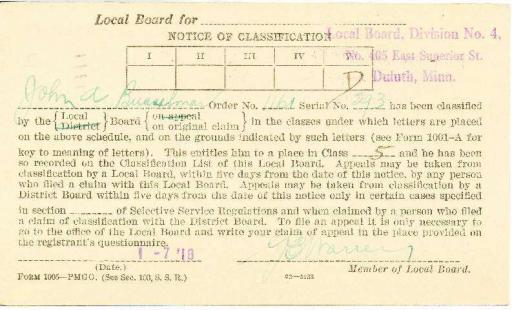 Local Board for
NOTICE OF CLASSIFICATION
Local Board, Division No. 4,
No. 405 East Superior St.
Duluth, Minn.
I II III IV V
D
John A Order No. Serial No. 393 has been classified
by the { Local District } Board { on appeal on original claim } in the classes under which letters are placed
on the above schedule, and on the grounds indicated by such letters (see Form 1001-A for
key to meaning of letters). This entitles him to a place in Class 5 and he has been
so recorded on the Classification List of this Local Board. Appeals may be taken from
classification by a Local Board, within five days from the date of this notice, by any person
who filed a claim with this Local Board. Appeals may be taken from classification by a
District Board within five days from the date of this notice only in certain cases specified
in section of Selective Service Regulations and when claimed by a person who filed
a claim of classification with the District Board. To file an appeal it is only necessary to
go to the office of the Local Board and write your claim of appeal in the place provided on
the registrant's questionnaire.
1-7 '18
(Date.) Member of Local Board.
FORM 1005-PMGO. (See Sec. 103, S. S. R.)